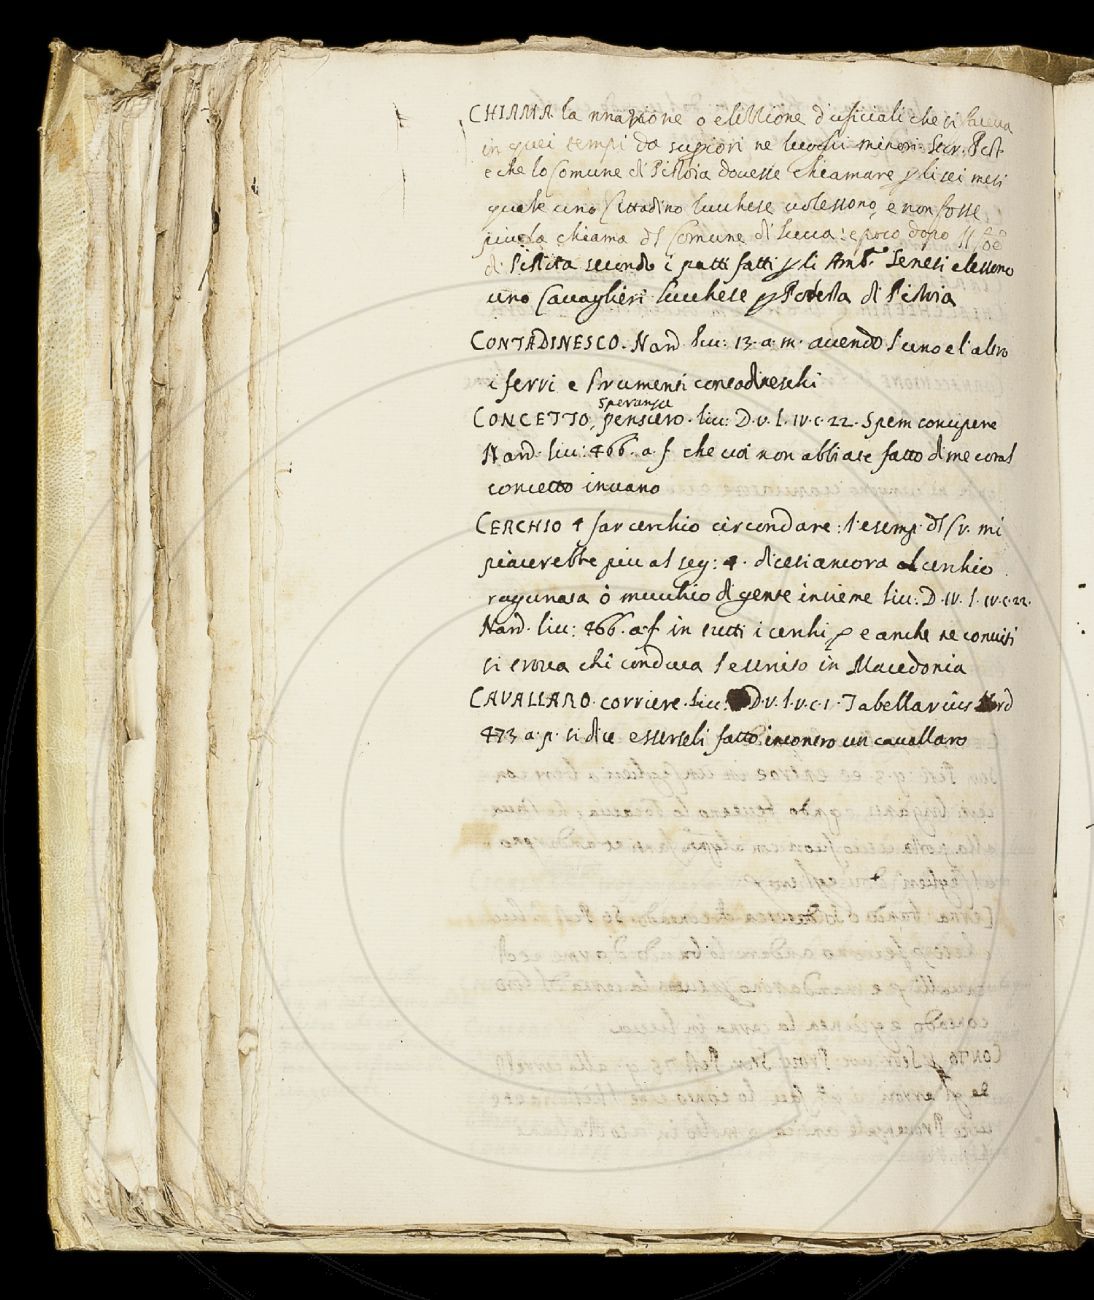 CHIAMA la nnazione o elettione d'uficiali che si faceva
in quei tempi da supiori ne luoghi minori. Stor. Pist.
e che lo Comune di Pistoia dovesse chiamare p li sei mesi
quale uno Cittadino lucchese volessono, e non fosse
piu la chiama dl Comune di lucca: e poco dopo
di Pistoia secondo i patti fatti p li Amb.ri Senesi elessono
uno Cavaglieri lucchese p Podesta di Pistoia
CONTADINESCO. Nard. liv: 13. a. m. avendo l'uno e l'altro
i ferri e strumenti contadineschi
CONCETTO, speranza pensiero. liv: D.V. l. IV. c. 22. Spem concipere
Nard. liv: 466. a. f. che voi non abbiate fatto di me cotal
concetto invano
CERCHIO 4 far cerchio circondare: l'esemp. dl Sv. mi
piacerebbe piu al seg: 4. dicesi ancora al cerchio
ragunata ò mucchio di gente insieme liv: D. IV. l. IV. c. 22.
Nard. liv: 466. a. f. in tutti i cerchi p e anche ne conviti
si trova chi conduca l'esercito in Macedonia
CAVALLARO. corriere. liv: D. V. l. V. c. 1. Tabellarius Nard
473 a. p. si dice esserseli fatto incontro un cavallaro